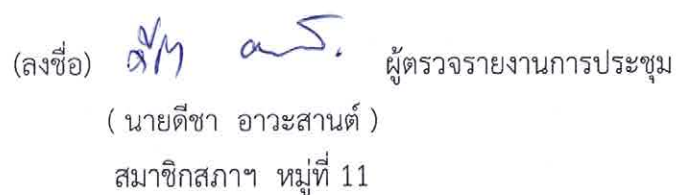 (ลงชื่อ) ผู้ตรวจรายงานการประชุม
( นายดีชา อาวะสานต์ )
สมาชิกสภาฯ หมู่ที่ 11